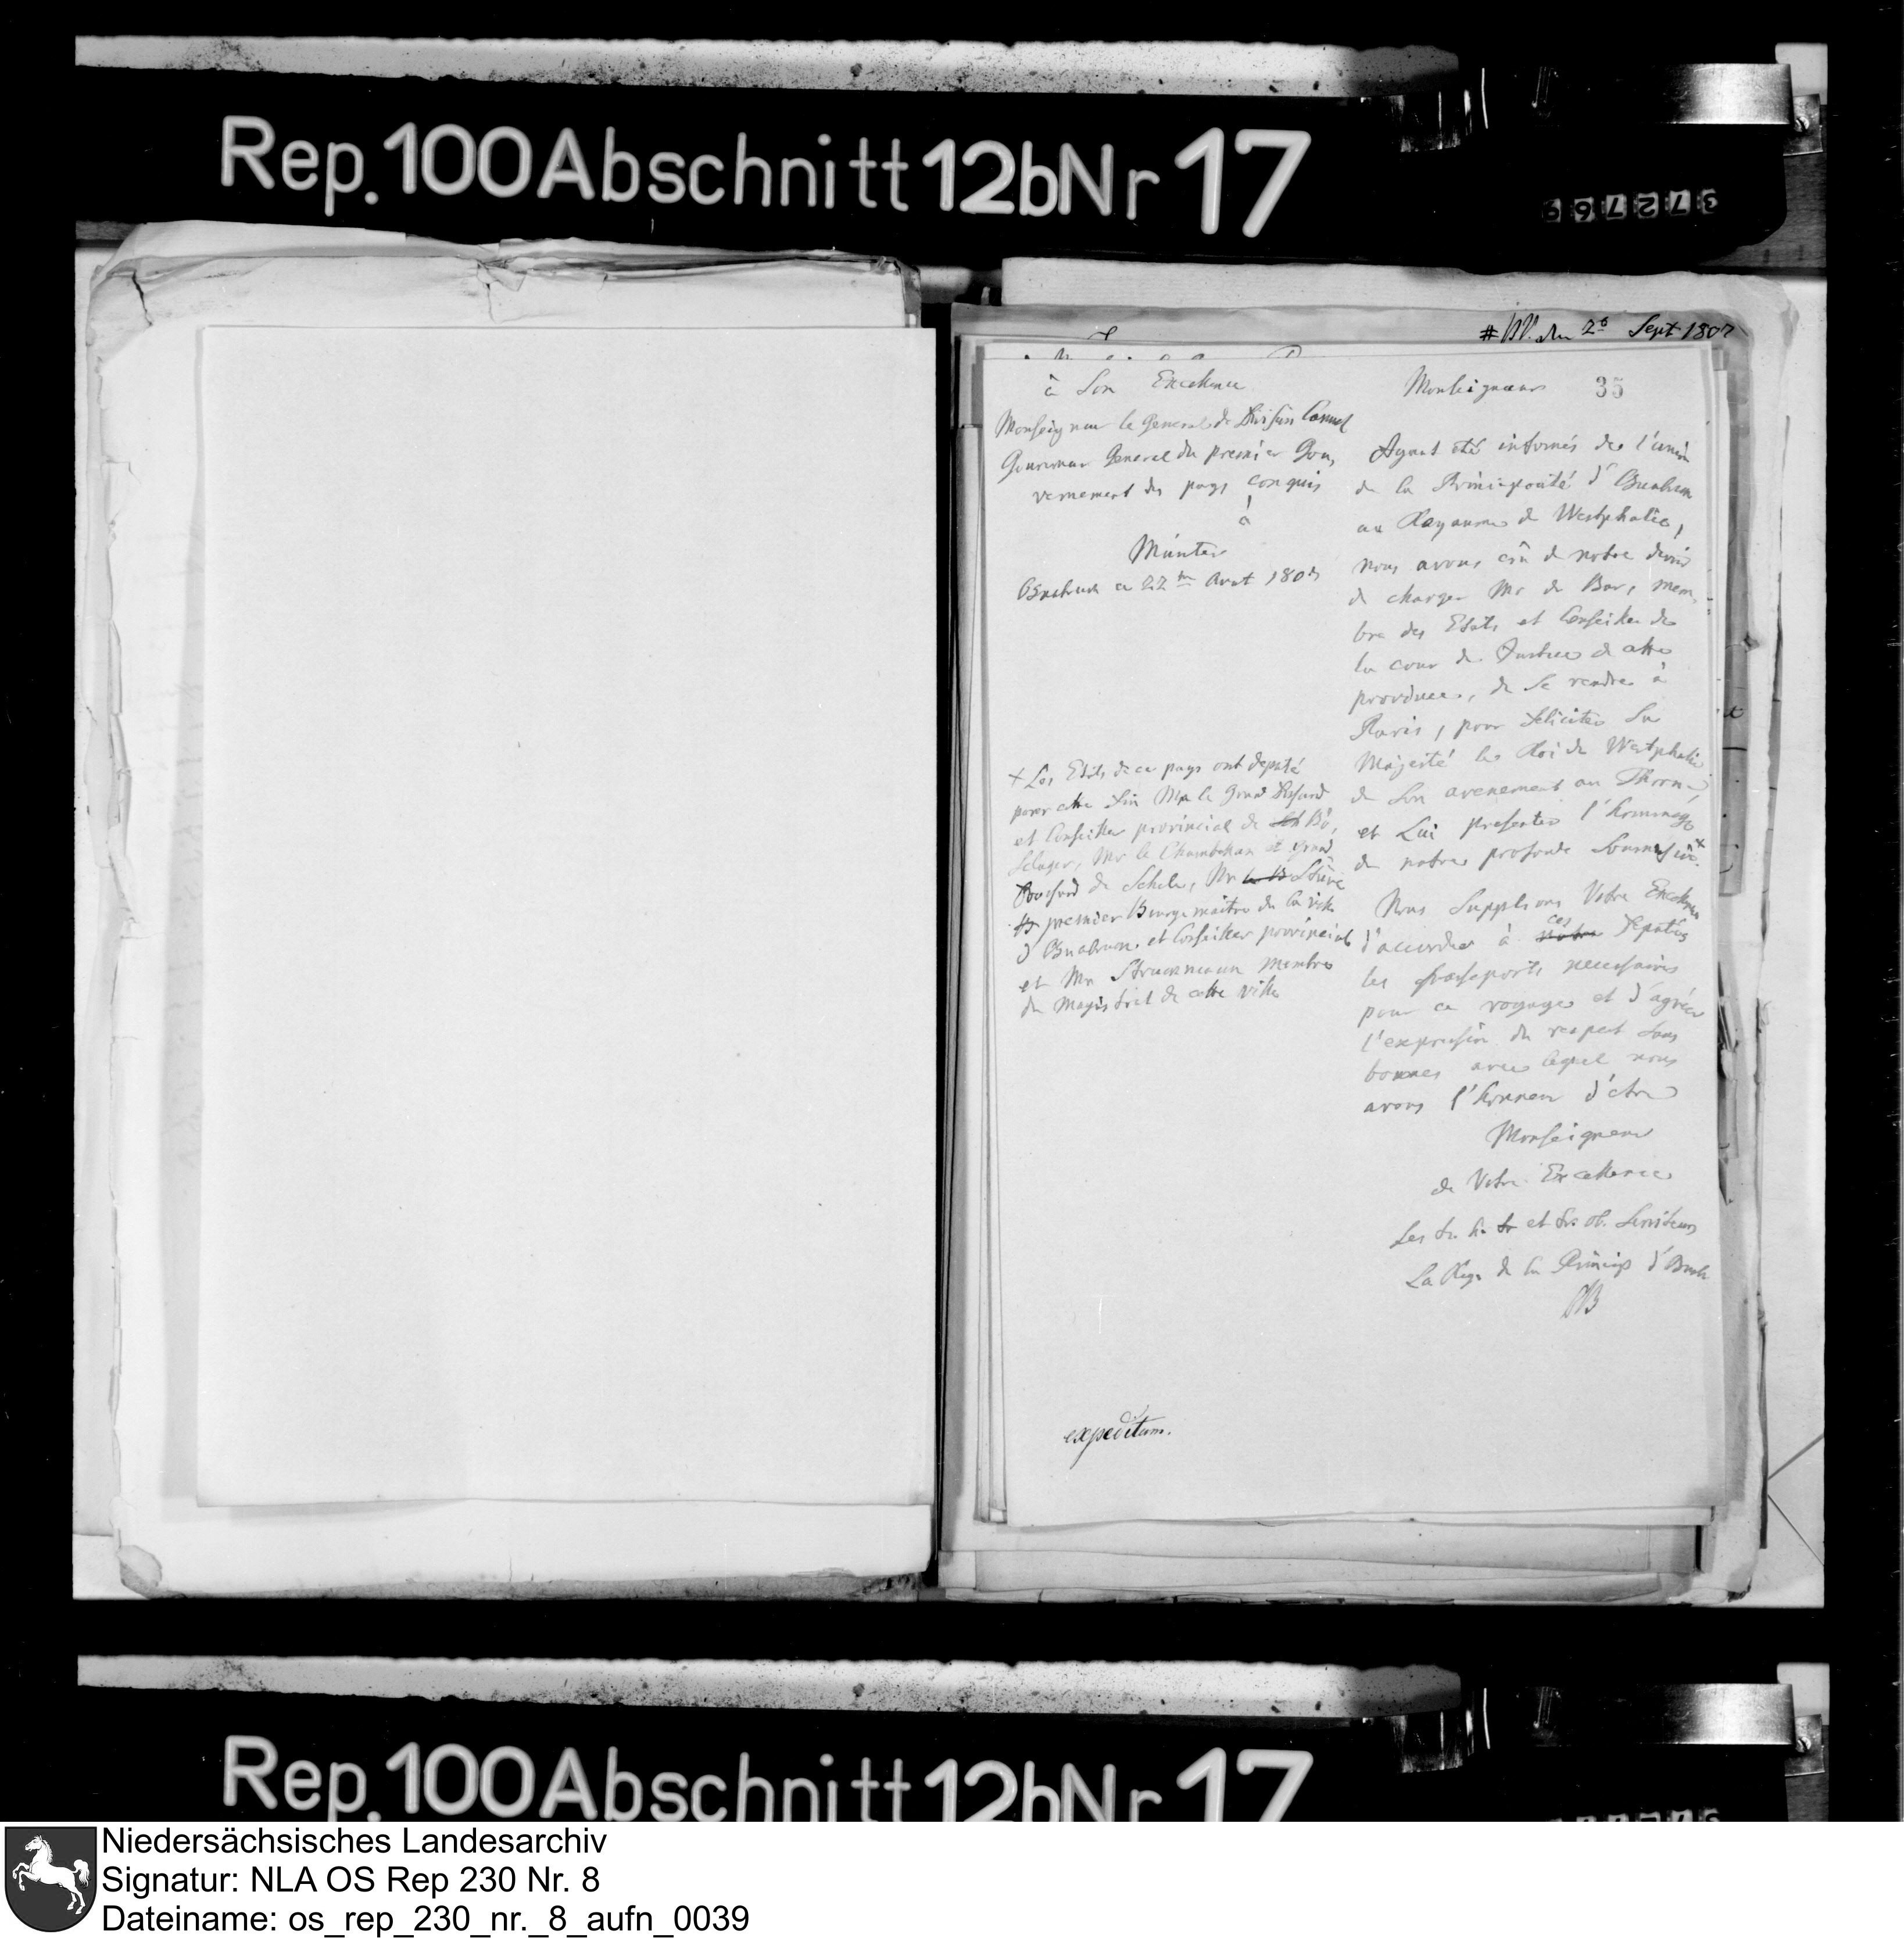 Rep.100Abschnitt12bNr17
372769
Sept 1807
35
à Son Excellence
Monseigneur le General de Division Canuel
Gouverneur General du premier Gou,
vernement des pays conquis
à
Münster
Osnabruck ce 22me Aout 1807
Monseigneur
Ayant été informés de l'union
de la Principauté d'Osnabruc
au Royaume de Westphalie,
nous avons crû de notre devoir
de charger Mr de Bar, mem,
bre des Etats et Conseiller de
la cour de Justice de cette
province, de se rendre à
Paris, pour feliciter Sa
Majesté le Roi de Westphalie
de Son avenement au Throne,
et Lui presenter l'hommage
de notre profonde Soumission. +
+ Les Etats de ce pays ont deputé
pour cette fin Mr le Grand
et Conseiller provincial de Bö,
selager, Mr le Chambellan et Grand
de Schele, Mr Stüve
premier Bourgemaitre de la ville
d'Osnabruc et Conseiller provincial
et Mr Struckmann membre
du Magistrat de cette ville
Nous Supplions Votre Excellence
d'accorder à notre ces Deputés
les passeports necessaires
pour ce voyage et d'agréer
l'expression du respect sans
bornes avec lequel nous
avons l'honneur d'etre
Monseigneur
de Votre Excellence
Les tr. h. tr et tr. ob. Serviteurs
La Reg. de la Princip d'Osnabr
expeditum.
Rep.100Abschnitt12bNr17
Niedersächsisches Landesarchiv
Signatur: NLA OS Rep 230 Nr. 8
Dateiname: os_rep_230_nr._8_aufn_0039